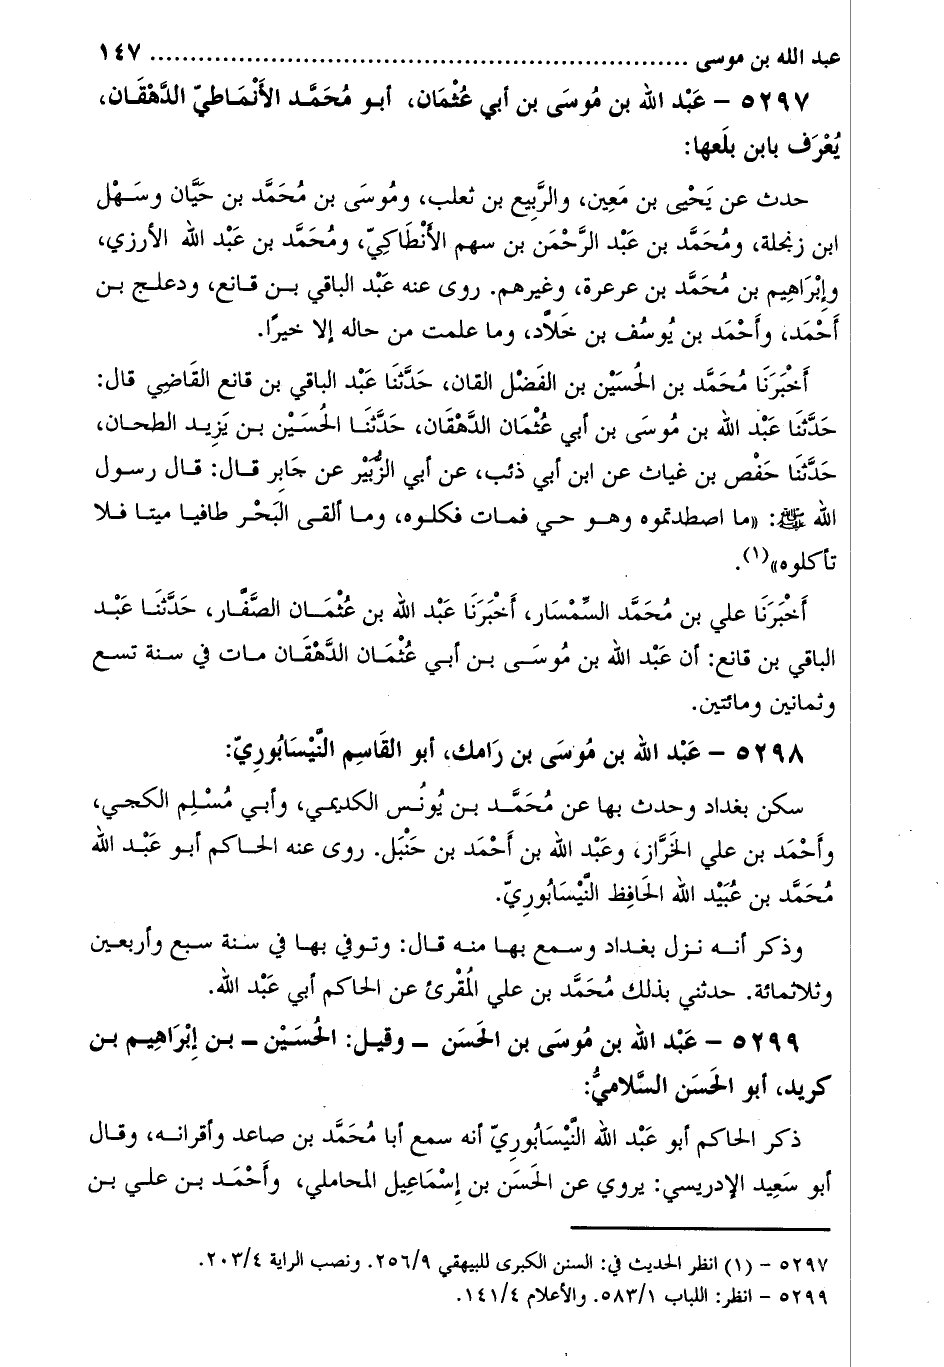 عبد الله بن موسى .................................................................. ١٤٧
٥٢٩٧ – عَبْد الله بن مُوسَى بن أبي عُثْمَان، أبو مُحَمَّد الأَنْمَاطيّ الدَّهْقَان،
يُعْرَف بابن بلَعها:
حدث عن يَحْيى بن مَعِين، والرَّبِيع بن ثعلب، ومُوسَى بن مُحَمَّد بن حَيَّان وسَهْل
ابن زنجلة، ومُحَمَّد بن عَبْد الرَّحْمَن بن سهم الأَنْطَاكِيّ، ومُحَمَّد بن عَبْد الله الأرزي،
وإِبْرَاهِيم بن مُحَمَّد بن عرعرة، وغيرهم. روى عنه عَبْد الباقي بن قانع، ودعلج بن
أَحْمَد، وأَحْمَد بن يُوسُف بن خَلاَّد، وما علمت من حاله إلا خيرًا.
أَخْبَرَنَا مُحَمَّد بن الحُسَيْن بن الفَضْل القان، حَدَّثَنا عَبْد الباقي بن قانع القَاضِي قال:
حَدَّثَنَا عَبْد الله بن مُوسَى بن أبي عُثْمَان الدَّهْقَان، حَدَّثَنَا الحُسَيْن بن يَزِيد الطحان،
حَدَّثَنَا حَفْص بن غياث عن ابن أبي ذئب، عن أبي الزُّبَيْر عن جَابِر قال: قال رسول
الله ﷺ: «ما اصطدتموه وهو حي فمات فكلوه، وما ألقى البَحْر طافيا ميتا فلا
تأكلوه»(١).
أَخْبَرَنَا علي بن مُحَمَّد السِّمْسَار، أَخْبَرَنَا عَبْد الله بن عُثْمَان الصَّفَّار، حَدَّثَنَا عَبْد
الباقي بن قانع: أن عَبْد الله بن مُوسَى بن أبي عُثْمَان الدَّهْقَان مات في سنة تسع
وثمانين ومائتين.
٥٢٩٨ – عَبْد الله بن مُوسَى بن رَامك، أبو القَاسِم النَّيْسَابُوريّ:
سكن بغداد وحدث بها عن مُحَمَّد بن يُونُس الكديمي، وأبي مُسْلِم الكجي،
وأَحْمَد بن علي الخَرَّاز، وعَبْد الله بن أَحْمَد بن حَنْبَل. روى عنه الحاكم أبو عَبْد الله
مُحَمَّد بن عُبَيْد الله الحَافِظ النَّيْسَابُوريّ.
وذكر أنه نزل بغداد وسمع بها منه قال: وتوفي بها في سنة سبع وأربعين
وثلاثمائة. حدثني بذلك مُحَمَّد بن علي المُقْرئ عن الحاكم أبي عَبْد الله.
٥٢٩٩ – عَبْد الله بن مُوسَى بن الحَسَن – وقيل: الحُسَيْن – بن إِبْرَاهِيم بن
كريد، أبو الحَسَن السَّلاميُّ:
ذكر الحاكم أبو عَبْد الله النَّيْسَابُوريّ أنه سمع أبا مُحَمَّد بن صاعد وأقرانه، وقال
أبو سَعِيد الإدريسي: يروي عن الحَسَن بن إِسْمَاعِيل المحاملي، وأَحْمَد بن علي بن
٥٢٩٧ – (١) انظر الحديث في: السنن الكبرى للبيهقي ٢٥٦/٩. ونصب الراية ٢٠٣/٤.
٥٢٩٩ – انظر: اللباب ٥٨٣/١. والأعلام ١٤١/٤.